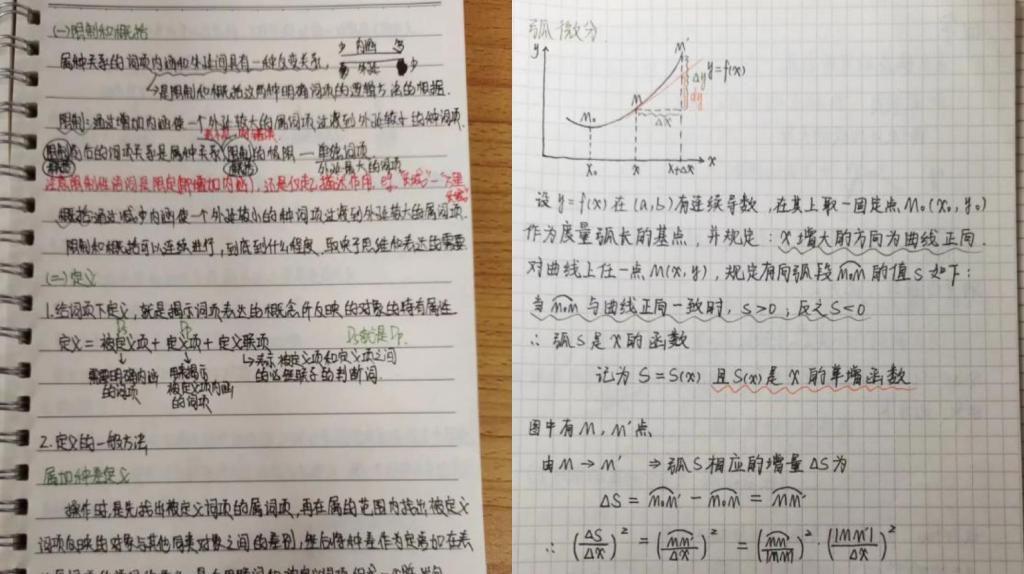 (一)限制和概括
属种关系的词项内涵和外延间具有一种反变关系,
少 内涵 多
外延
→是限制和概括这两种明确词项的逻辑方法的根据.
限制:通过增加内涵使一个外延较大的属词项过渡到外延较小的种词项.
限制前后的词项关系是属种关系 限制的极限—单独词项
概括 概括 外延最大的词项
注意限制性语词是限定(即增加内涵),还是仅起描述作用.
概括:通过减少内涵使一个外延较小的种词项过渡到外延较大的属词项.
限制和概括可以连续进行,到底到什么程度,取决于思维和表达的需要.
(二)定义
1.给词项下定义,就是揭示词项表达的概念所反映的对象的特有属性
定义=被定义项+定义项+定义联项 Ds就是Dp
需要明确内涵的词项
用来揭示被定义项内涵的词项
→表示被定义项和定义项之间的必然联系的判断词.
2.定义的一般方法
属加种差定义
操作时,是先找出被定义词项的属词项,再在属的范围内找出被定义
词项反映的对象与其他同类对象之间的差别,然后将种差作为定语加在表
弧微分
y
M'
Δy y=f(x)
dy
M
M₀ Δx
x₀ x x+Δx x
设 y=f(x) 在 (a,b) 有连续导数,在其上取一固定点 M₀(x₀,y₀)
作为度量弧长的基点,并规定:x增大的方向为曲线正向.
对曲线上任一点 M(x,y),规定有向弧段 M₀M 的值 S 如下:
当 M₀M 与曲线正向一致时,S>0;反之S<0
∴ 弧S是 x 的函数
记为 S=S(x) 且S(x)是 x 的单增函数
图中有 M,M'点
由 M→M' ⇒弧S相应的增量ΔS为
ΔS = M₀M' − M₀M = MM'
∴ (ΔS/Δx)² = (MM'/Δx)² = (MM'/|MM'|)² · (|MM'|/Δx)²